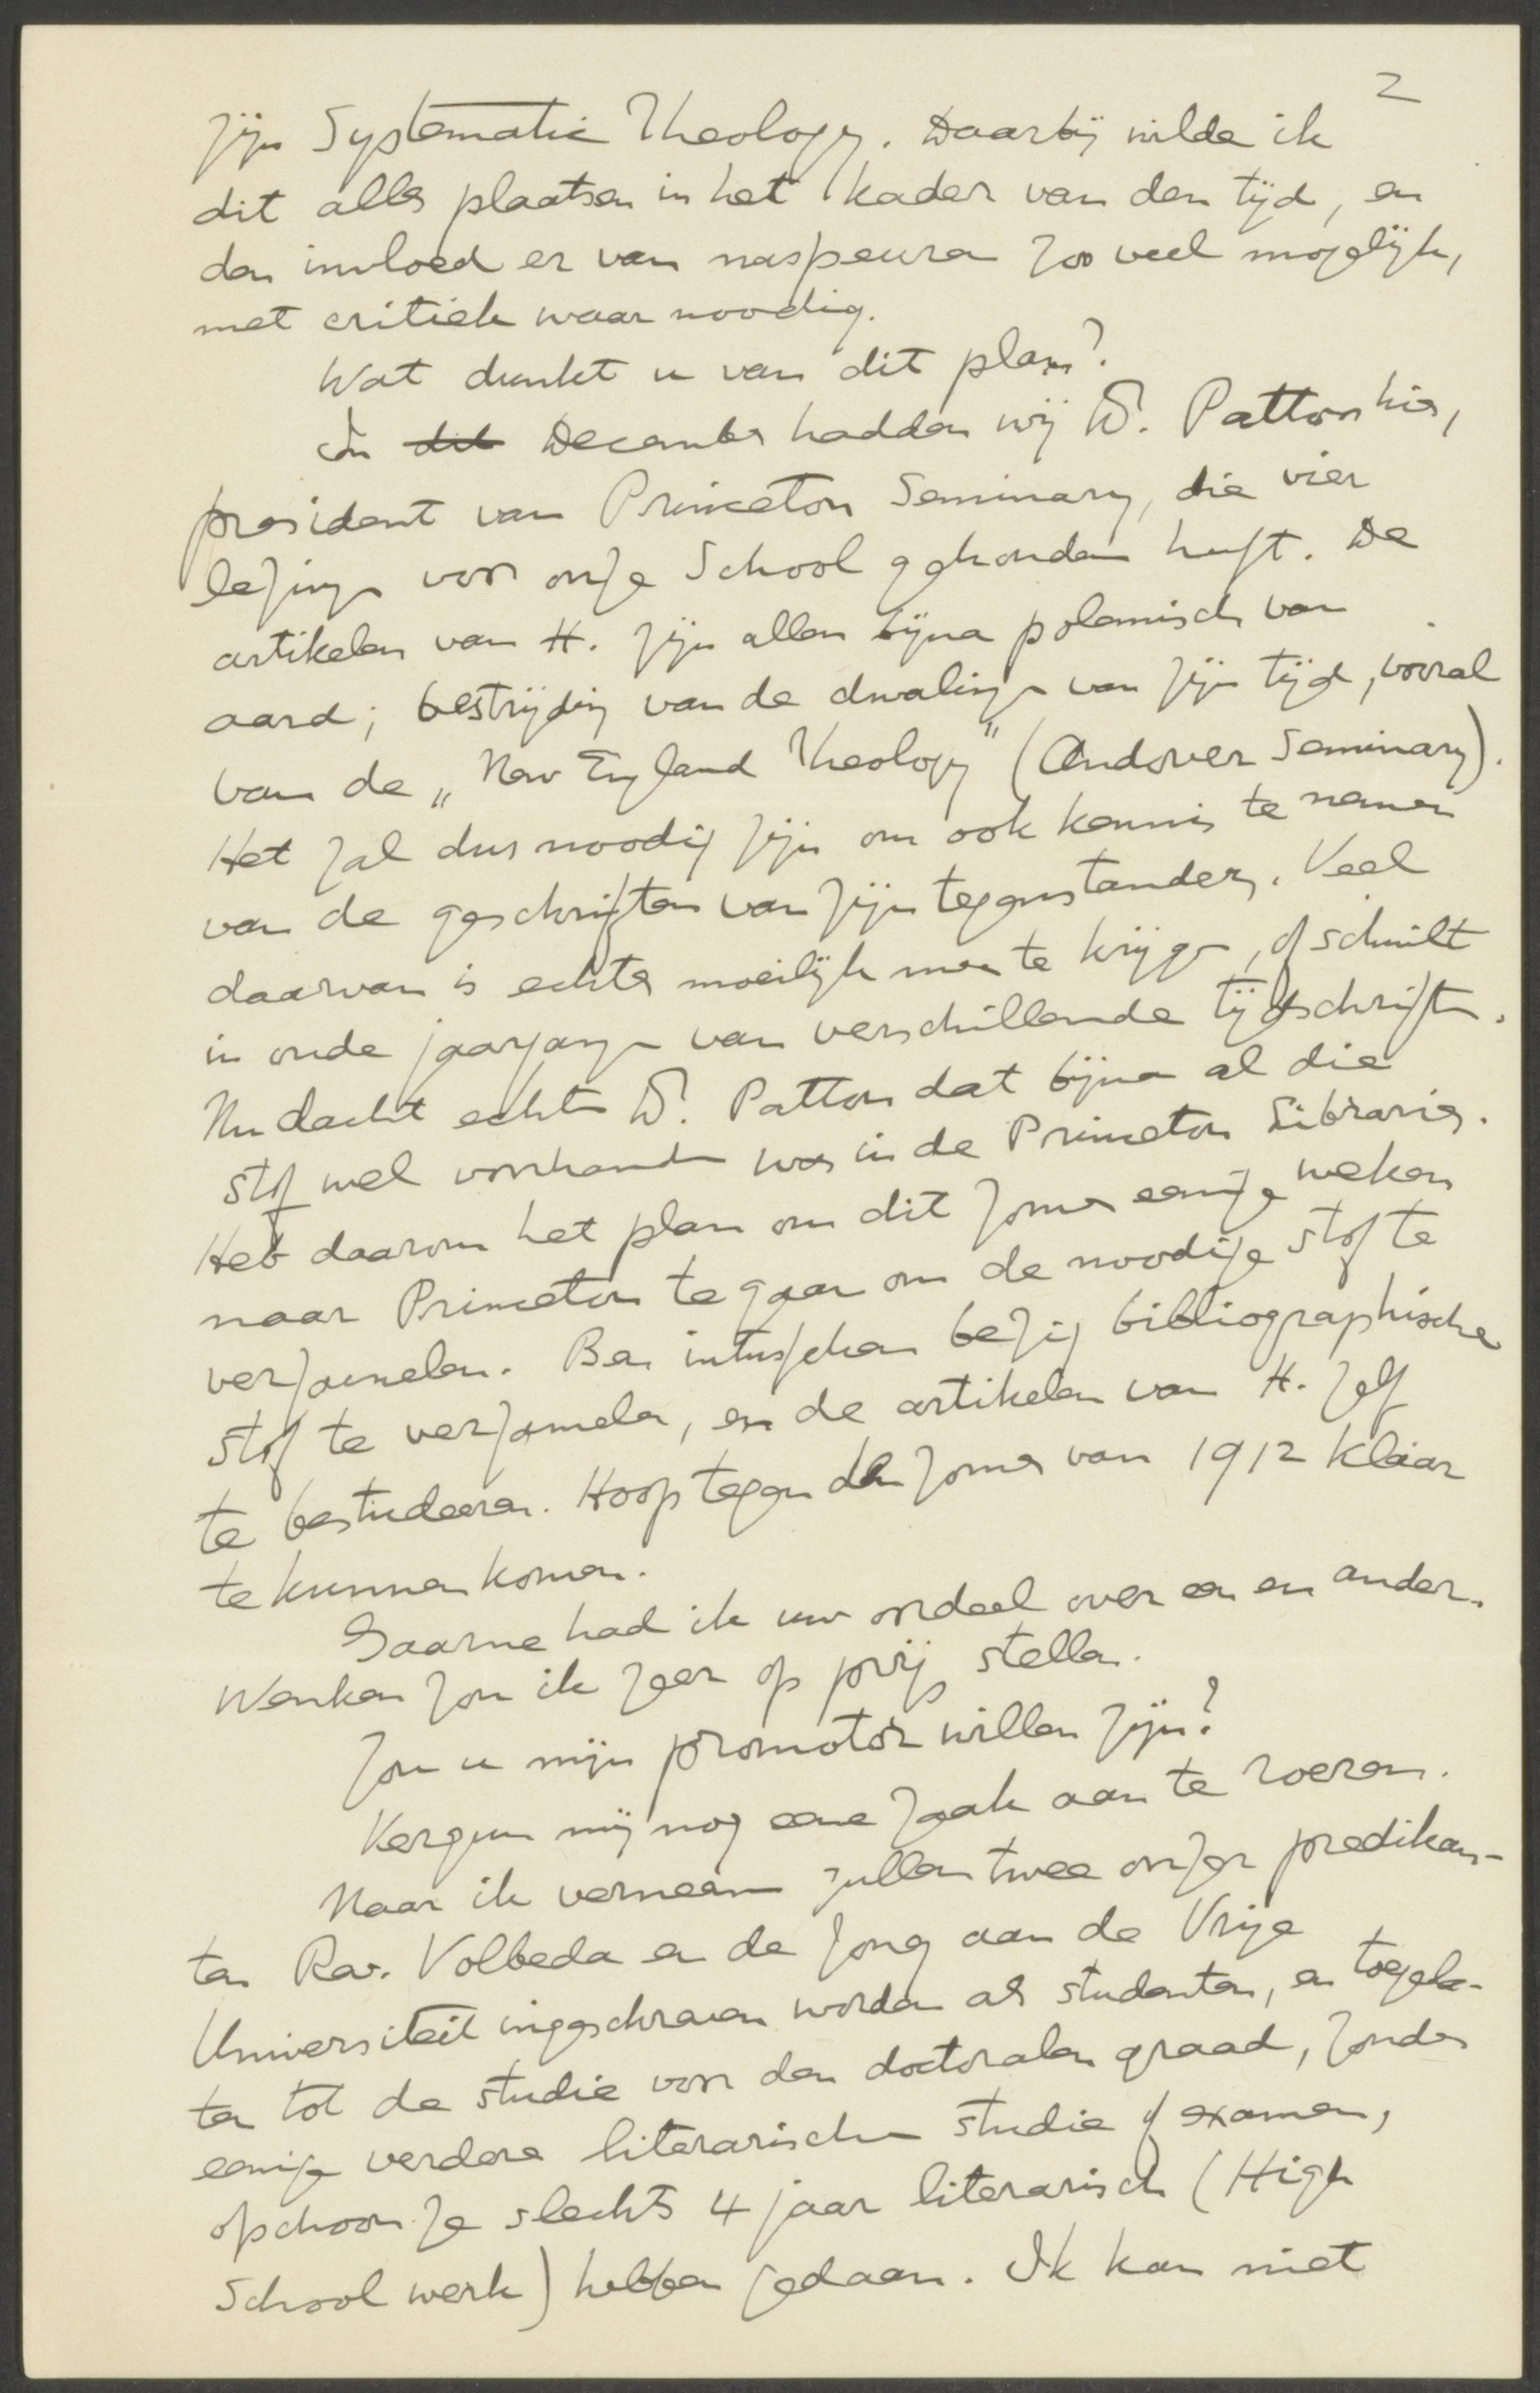 2
zijn Systematic Theology. Daarbij wilde ik
dit alles plaatsen in het kader van den tijd, en
den invloed er van naspeuren zoo veel mogelijk,
met critiek waar noodig.
Wat dunkt u van dit plan?
In dit December hadden wij Dr. Patton hier,
president van Princeton Seminary, die vier
lezingen voor onze School gehouden heeft. De
artikelen van H. zijn allen bijna polemisch van
aard; bestrijding van de dwalingen van zijn tijd, vooral
van de „New England Theology" (Andover Seminary).
Het zal dus noodig zijn om ook kennis te nemen
van de geschriften van zijn tegenstanders. Veel
daarvan is echter moeilijk meer te krijgen, of schuilt
in oude jaargangen van verschillende tijdschriften.
Nu dacht echter Dr. Patton dat bijna al die
stof wel voorhanden was in de Princeton Libraries.
Heb daarom het plan om dit zomer eenige weken
naar Princeton te gaan om de noodige stof te
verzamelen. Ben intusschen bezig bibliographische
stof te verzamelen, en de artikelen van H. zelf
te bestudeeren. Hoop tegen den zomer van 1912 klaar
te kunnen komen.
Gaarne had ik uw oordeel over een en ander.
Wenken zou ik zeer op prijs stellen.
Zou u mijn promotor willen zijn?
Vergun mij nog eene zaak aan te roeren.
Naar ik verneem zullen twee onzer predikan-
ten Rev. Volbeda en de Jong aan de Vrije
Universiteit ingeschreven worden als studenten, en toegela-
ten tot de studie voor den doctoralen graad, zonder
eenige verdere literarische studie of examen,
ofschoon ze slechts 4 jaar literarisch (High
School werk) hebben gedaan. Ik kan niet